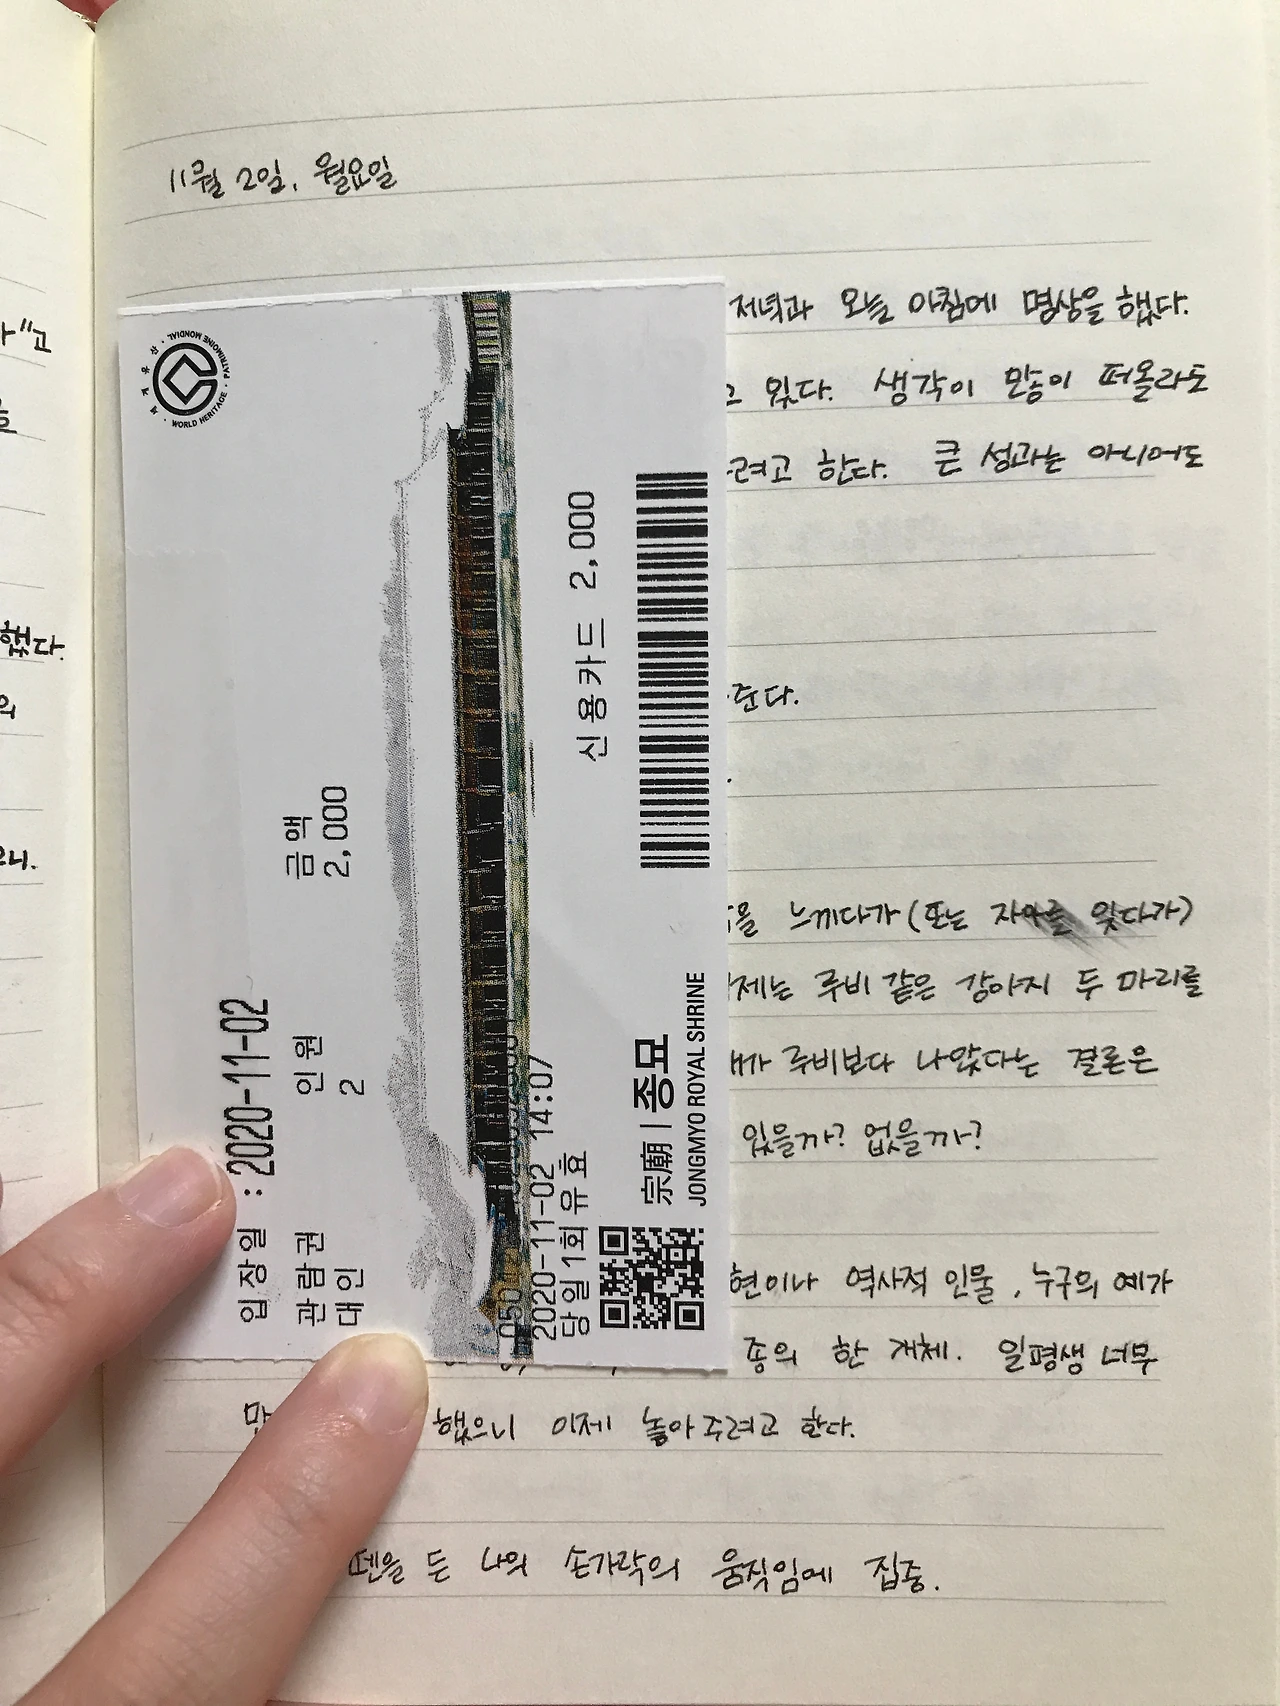 11월 2일, 월요일
저녁과 오늘 아침에 명상을 했다.
있다. 생각이 많이 떠올라도
려고 한다. 큰 성과는 아니어도
준다.
을 느끼다가 (또는 자아를 잊다가)
제는 루비 같은 강아지 두 마리를
내가 루비보다 나았다는 결론은
있을까? 없을까?
현이나 역사적 인물, 누구의 예가
종의 한 개체. 일평생 너무
했으니 이제 놓아주려고 한다.
펜을 든 나의 손가락의 움직임에 집중.
"고
했다.
의
세계유산 · WORLD HERITAGE · PATRIMOINE MONDIAL
입장일 : 2020-11-02
관람권 인원 금액
대인 2 2,000
2020-11-02 14:07
당일 1회 유효
신용카드 2,000
宗廟 | 종묘
JONGMYO ROYAL SHRINE